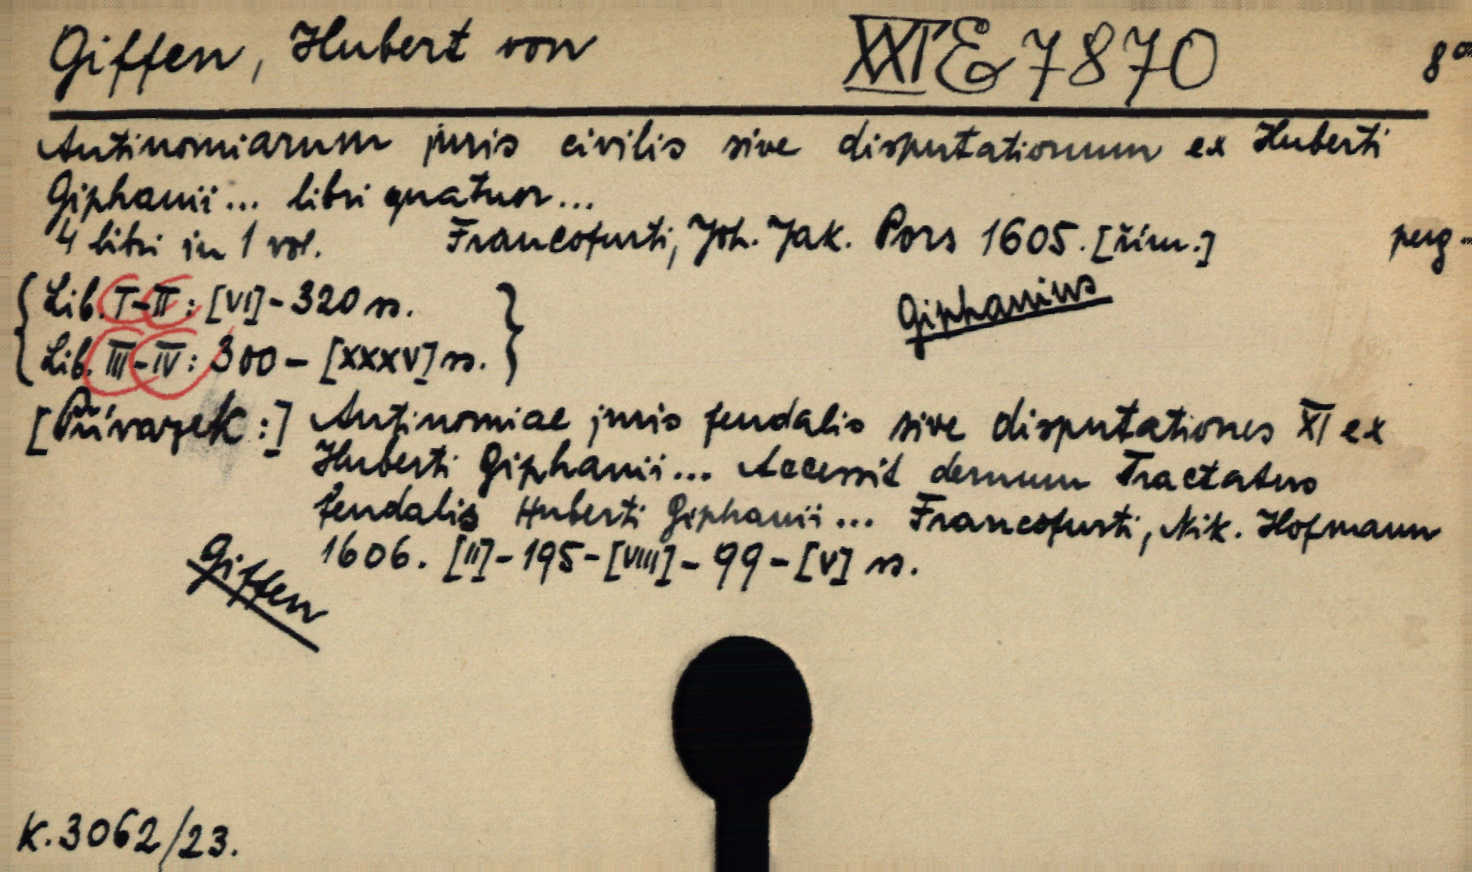 Giffen, Hubert von XXI E 7870 8°
Antinomiarum juris civilis sive disputationum ex Huberti
Giphanii... libri quatuor...
4 libri in 1 vol. Francofurti, Joh. Jak. Pors 1605. [řím.] perg.
{ Lib. I-II: [VI]-320 ss. }
Giphanius
{ Lib. III-IV: 300-[XXXV] ss. }
[Přívazek:] Antinomiae juris feudalis sive disputationes XI ex
Huberti Giphanii... Accessit demum Tractatus
feudalis Huberti Giphanii... Francofurti, Nik. Hofmann
1606. [II]-195-[VIII]-99-[V] ss.
Giffen
K.3062/23.